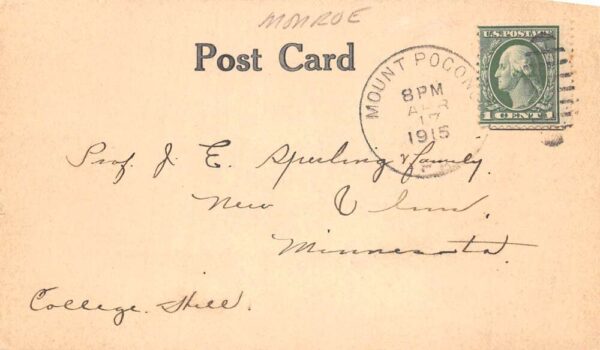 MONROE
Post Card
MOUNT POCONO
8 PM
APR
17
1915
PA.
U.S. POSTAGE
1 CENT 1
Prof. J. E. Sperling & family.
New Ulm,
Minnesota.
College Hill.